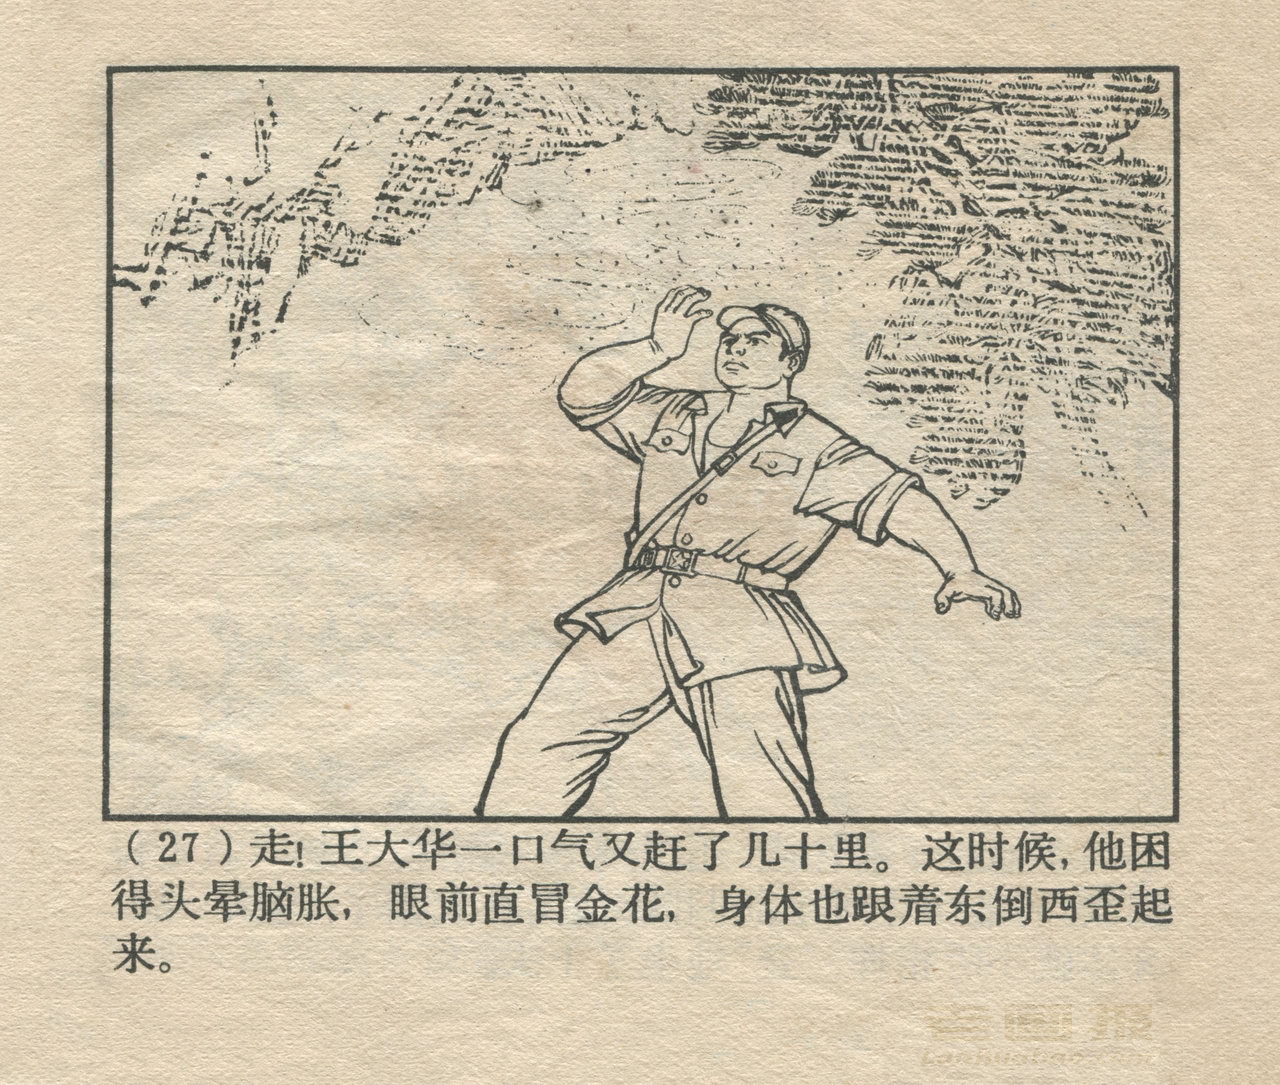 （27）走！王大华一口气又赶了几十里。这时候，他困
得头晕脑胀，眼前直冒金花，身体也跟着东倒西歪起
来。
老画报
Laohuabao.com